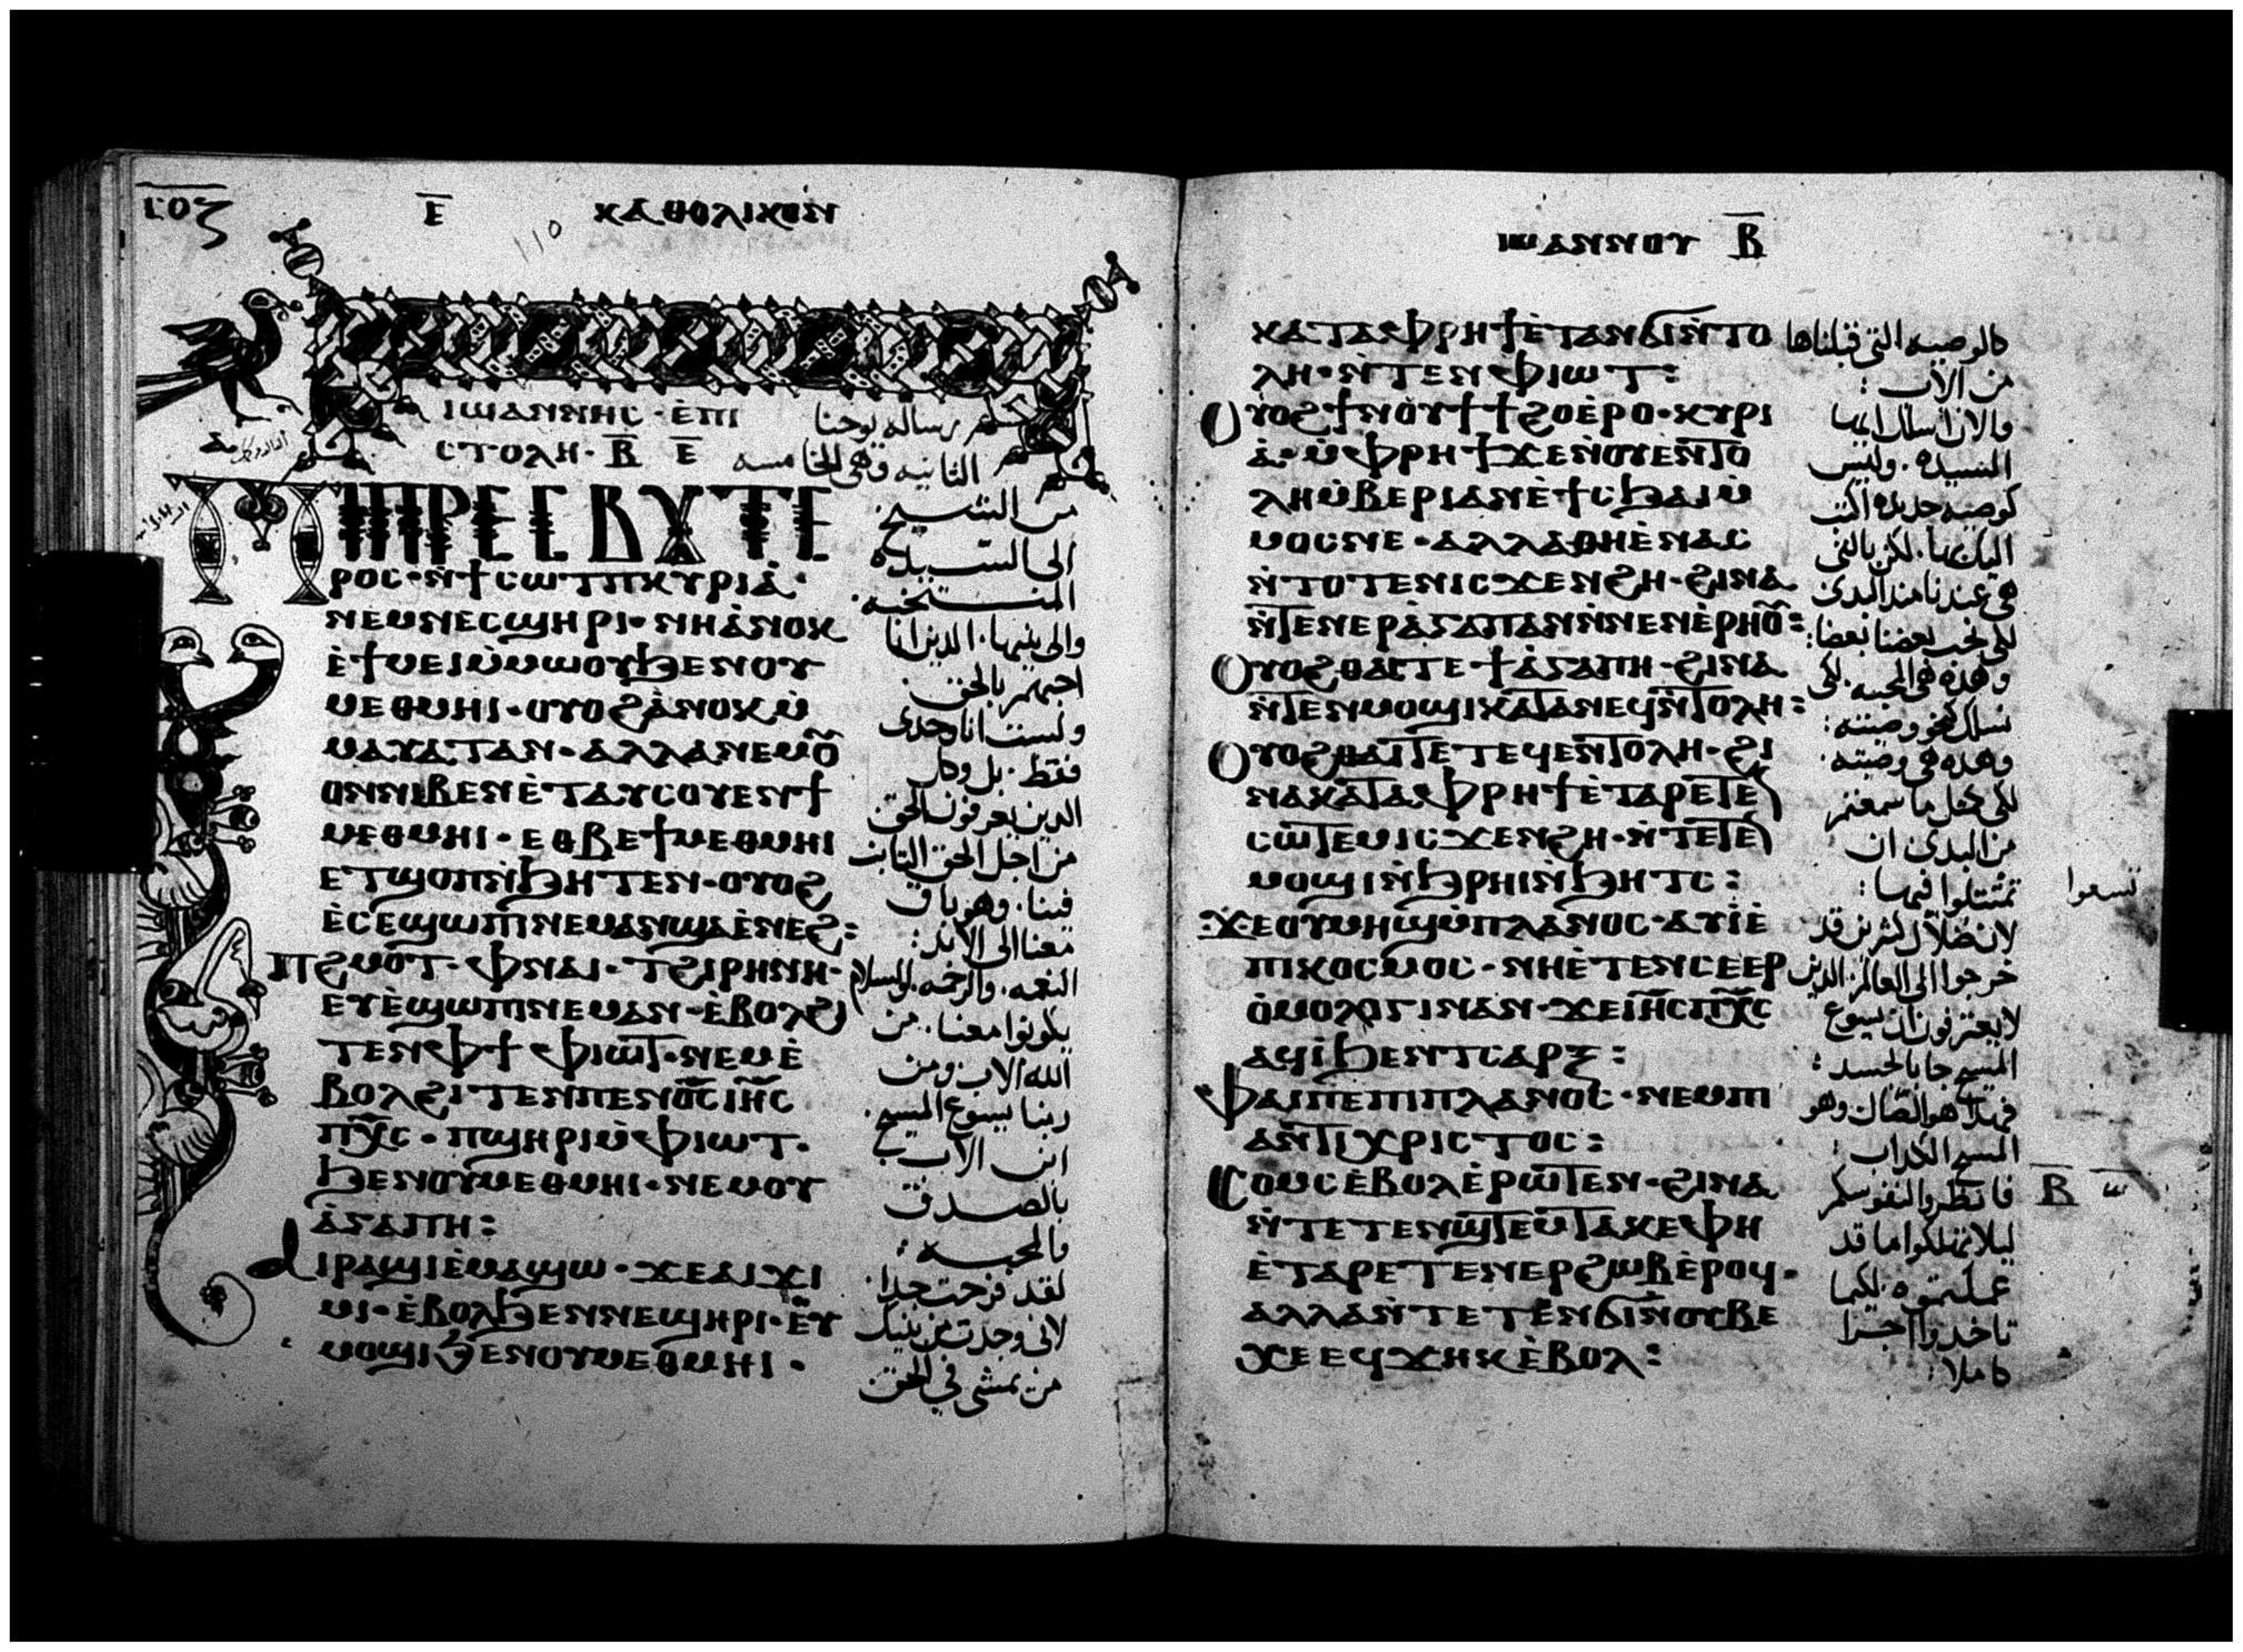 ⲣⲟⲍ
Ⲉ̅ ⲕⲁⲑⲟⲗⲓⲕⲟⲛ
110
ⲓⲱⲁⲛⲛⲏⲥ · ⲉ̀ⲡⲓ
ⲥⲧⲟⲗⲏ · Ⲃ̅ Ⲉ̅
رساله يوحنا
الثانيه وهى الخامسه
ⲡⲓⲡⲣⲉⲥⲃⲩⲧⲉ
ⲣⲟⲥ · ⲛ̀ϯⲥⲱⲧⲡⲕⲩⲣⲓⲁ̀ ·
ⲛⲉⲙⲛⲉⲥϣⲏⲣⲓ · ⲛⲏⲁ̀ⲛⲟⲕ
ⲉ̀ϯⲙⲉⲓⲙ̀ⲙⲱⲟⲩϧⲉⲛⲟⲩ
ⲙⲉⲑⲙⲏⲓ · ⲟⲩⲟϩⲁ̀ⲛⲟⲕⲙ̀
ⲙⲁⲩⲁⲧⲁⲛ · ⲁⲗⲗⲁⲛⲉⲙⲟ̅
ⲟⲛⲛⲓⲃⲉⲛⲉ̀ⲧⲁⲩⲥⲟⲩⲉⲛϯ
ⲙⲉⲑⲙⲏⲓ · ⲉⲑⲃⲉϯⲙⲉⲑⲙⲏⲓ
ⲉⲧϣⲟⲡⲛ̀ϧⲏⲧⲉⲛ · ⲟⲩⲟϩ
ⲉ̀ⲥⲉϣⲱⲡⲓⲛⲉⲙⲁⲛϣⲁⲉ̀ⲛⲉϩ :
ⲡϩⲙⲟⲧ · ⲫⲛⲁⲓ · ⲧϩⲓⲣⲏⲛⲏ ·
ⲉⲩⲉ̀ϣⲱⲡⲓⲛⲉⲙⲁⲛ · ⲉ̀ⲃⲟⲗϩⲓ
ⲧⲉⲛⲫϯ ⲫⲓⲱⲧ · ⲛⲉⲙⲉ̀
ⲃⲟⲗϩⲓⲧⲉⲛⲡⲉⲛⲟ̅ⲥ̅ⲓⲏ̅ⲥ
ⲡⲭ̅ⲥ · ⲡϣⲏⲣⲓⲙ̀ⲫⲓⲱⲧ ·
ϧⲉⲛⲟⲩⲙⲉⲑⲙⲏⲓ · ⲛⲉⲙⲟⲩ
ⲁ̀ⲅⲁⲡⲏ :
ⲁⲓⲣⲁϣⲓⲉ̀ⲙⲁϣⲱ · ϫⲉⲁⲓϫⲓ
ⲙⲓ · ⲉ̀ⲃⲟⲗϧⲉⲛⲛⲉϣⲏⲣⲓ · ⲉⲩ
ⲙⲟϣⲓϧⲉⲛⲟⲩⲙⲉⲑⲙⲏⲓ ·
من الشيخ
الى السيده
المنتخبه ·
والى بنيها · الذين انا
احبهم بالحق ·
ولست انا وحدى
فقط · بل وكل
الذين يعرفون الحق
من اجل الحق الثابت
فينا · وهو باق
معنا الى الابد :
النعمه · والرحمه · والسلام
يكونوا معنا · من
الله الاب ومن
ربنا يسوع المسيح ·
ابن الاب
بالصدق
والمحبه :
لقد فرحت جدا ·
لانى وجدت من بنيك
من يمشى في الحق
ⲓⲱⲁⲛⲛⲟⲩ Ⲃ̅
ⲕⲁⲧⲁⲫⲣⲏϯⲉ̀ⲧⲁⲛϭⲓⲛ̀ⲧⲟ
ⲗⲏ · ⲛ̀ⲧⲉⲛⲫⲓⲱⲧ :
ⲟⲩⲟϩϯⲛⲟⲩϯϯϩⲟⲉ̀ⲣⲟ · ⲕⲩⲣⲓ
ⲁ̀ · ⲙ̀ⲫⲣⲏϯϫⲉⲛ̀ⲟⲩⲉⲛⲧⲟ
ⲗⲏⲙ̀ⲃⲉⲣⲓⲁⲛⲉ̀ϯⲥϧⲁⲓⲙ̀
ⲙⲟⲥⲛⲉ · ⲁⲗⲗⲁⲑⲏⲉ̀ⲛⲁⲥ
ⲛ̀ⲧⲟⲧⲉⲛⲓⲥϫⲉⲛϩⲏ · ϩⲓⲛⲁ
ⲛ̀ⲧⲉⲛⲉⲣⲁ̀ⲅⲁⲡⲁⲛⲛ̀ⲛⲉⲛⲉ̀ⲣⲏⲟ̅ :
ⲟⲩⲟϩⲑⲁⲓⲧⲉϯⲁ̀ⲅⲁⲡⲏ · ϩⲓⲛⲁ
ⲛ̀ⲧⲉⲛⲙⲟϣⲓⲕⲁⲧⲁⲛⲉϥⲛ̀ⲧⲟⲗⲏ :
ⲟⲩⲟϩⲑⲁⲓⲧⲉⲧⲉϥⲉⲛⲧⲟⲗⲏ · ϩⲓ
ⲛⲁⲕⲁⲧⲁⲫⲣⲏϯⲉ̀ⲧⲁⲣⲉⲧⲉ
ⲥⲱⲧⲉⲙⲓⲥϫⲉⲛϩⲏ · ⲛ̀ⲧⲉⲧⲉ
ⲙⲟϣⲓⲛ̀ϧⲣⲏⲓⲛ̀ϧⲏⲧⲥ :
ϫⲉⲟⲩⲙⲏϣⲙ̀ⲡⲗⲁⲛⲟⲥ · ⲁⲩⲓ̀ⲉ̀
ⲡⲓⲕⲟⲥⲙⲟⲥ · ⲛⲏⲉ̀ⲧⲉⲛⲥⲉⲉⲣ
ⲟ̀ⲙⲟⲗⲟⲅⲓⲛⲁⲛ · ϫⲉⲓⲏ̅ⲥⲡⲭ̅ⲥ
ⲁϥⲓ̀ϧⲉⲛⲧⲥⲁⲣⲝ :
ⲫⲁⲓⲡⲉⲡⲓⲡⲗⲁⲛⲟⲥ · ⲛⲉⲙⲡⲓ
ⲁⲛⲧⲓⲭⲣⲓⲥⲧⲟⲥ :
ⲥⲟⲙⲥⲉ̀ⲃⲟⲗⲉ̀ⲣⲱⲧⲉⲛ · ϩⲓⲛⲁ
ⲛ̀ⲧⲉⲧⲉⲛϣⲧⲉⲙⲧⲁⲕⲉⲫⲏ
ⲉ̀ⲧⲁⲣⲉⲧⲉⲛⲉⲣϩⲱⲃⲉ̀ⲣⲟϥ ·
ⲁⲗⲗⲁⲛ̀ⲧⲉⲧⲉⲛϭⲓⲛ̀ⲟⲩⲃⲉ
ⲭⲉⲉϥϫⲏⲕⲉ̀ⲃⲟⲗ :
كالوصيه التى قبلناها
من الاب :
والان اسلك ايتها
السيده · وليس
كوصيه جديده اكتب
اليك بها · لكن بالتى
هى عندنا منذ البدى
لكى نحب بعضنا بعضا :
وهذه هى المحبه · لكى
نسلك نحو وصيته :
وهذه هى وصيته ·
لكى كمثل ما سمعتم
من البدى ان
تمتثلوا فيها :
تسعوا
لان ضلال كثيرين قد
خرجوا الى العالم · الذين
لا يعترفون ان يسوع
المسيح جا بالجسد :
فهذا هو الضال وهو
المسيح الكداب :
فانظروا لنفوسكم
Ⲃ̅
ليلا تهلكوا ما قد
عملتموه · لكيما
تاخدوا اجرا
كاملا :